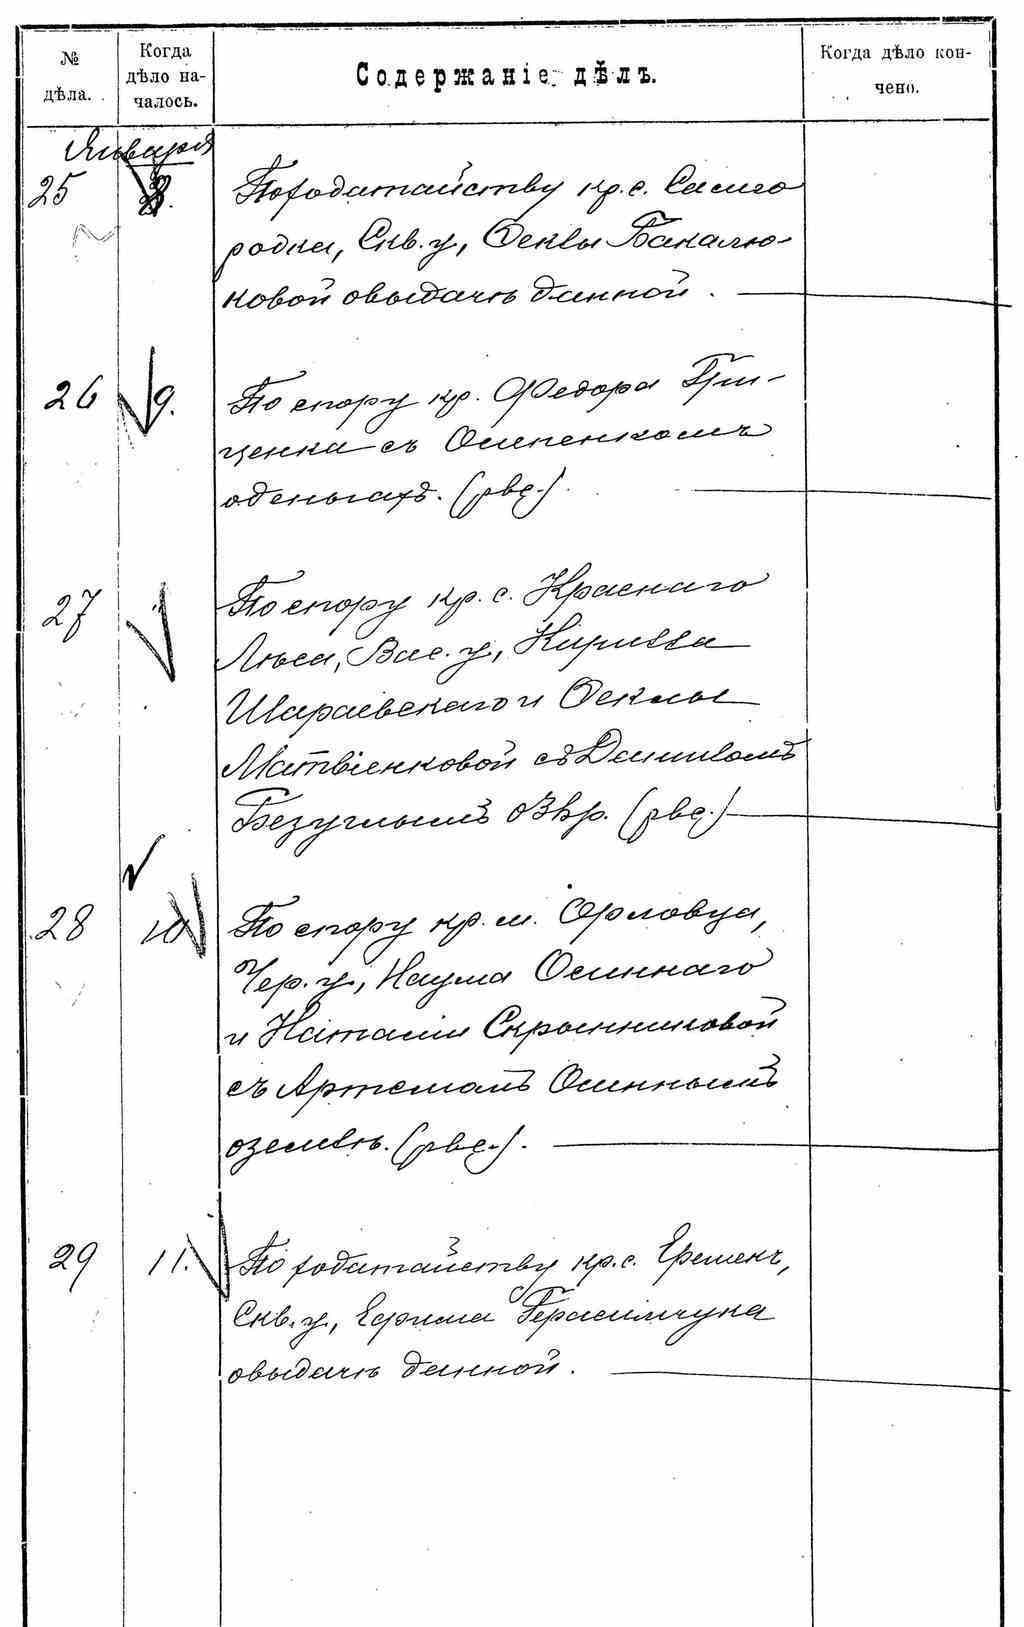 № дѣла.
Когда дѣло на-чалось.
Содержаніе дѣлъ.
Когда дѣло кон-чено.
Января
25
8.
По ходатайству кр. с. Самго
родка, Скв. у, Феклы Бакалю-
ковой о выдачѣ данной.
26
9.
По спору кр. Федора Гри-
ценка съ Осипенкомъ
о деньгахъ.
27
По спору кр. с. Краснаго
Лѣса, Вас. у, Кирилла
Шараевскаго и Феклы
Матвіенковой съ Даниломъ
Безуглымъ о
28
10
По спору кр. м. Орловца,
Чер. у, Наума Осиннаго
и Наталіи Скрынниковой
съ Артемомъ Осиннымъ
о землѣ.
29
11.
По ходатайству кр. с.
Скв. у, Ефима Герасимчука
о выдачѣ данной.